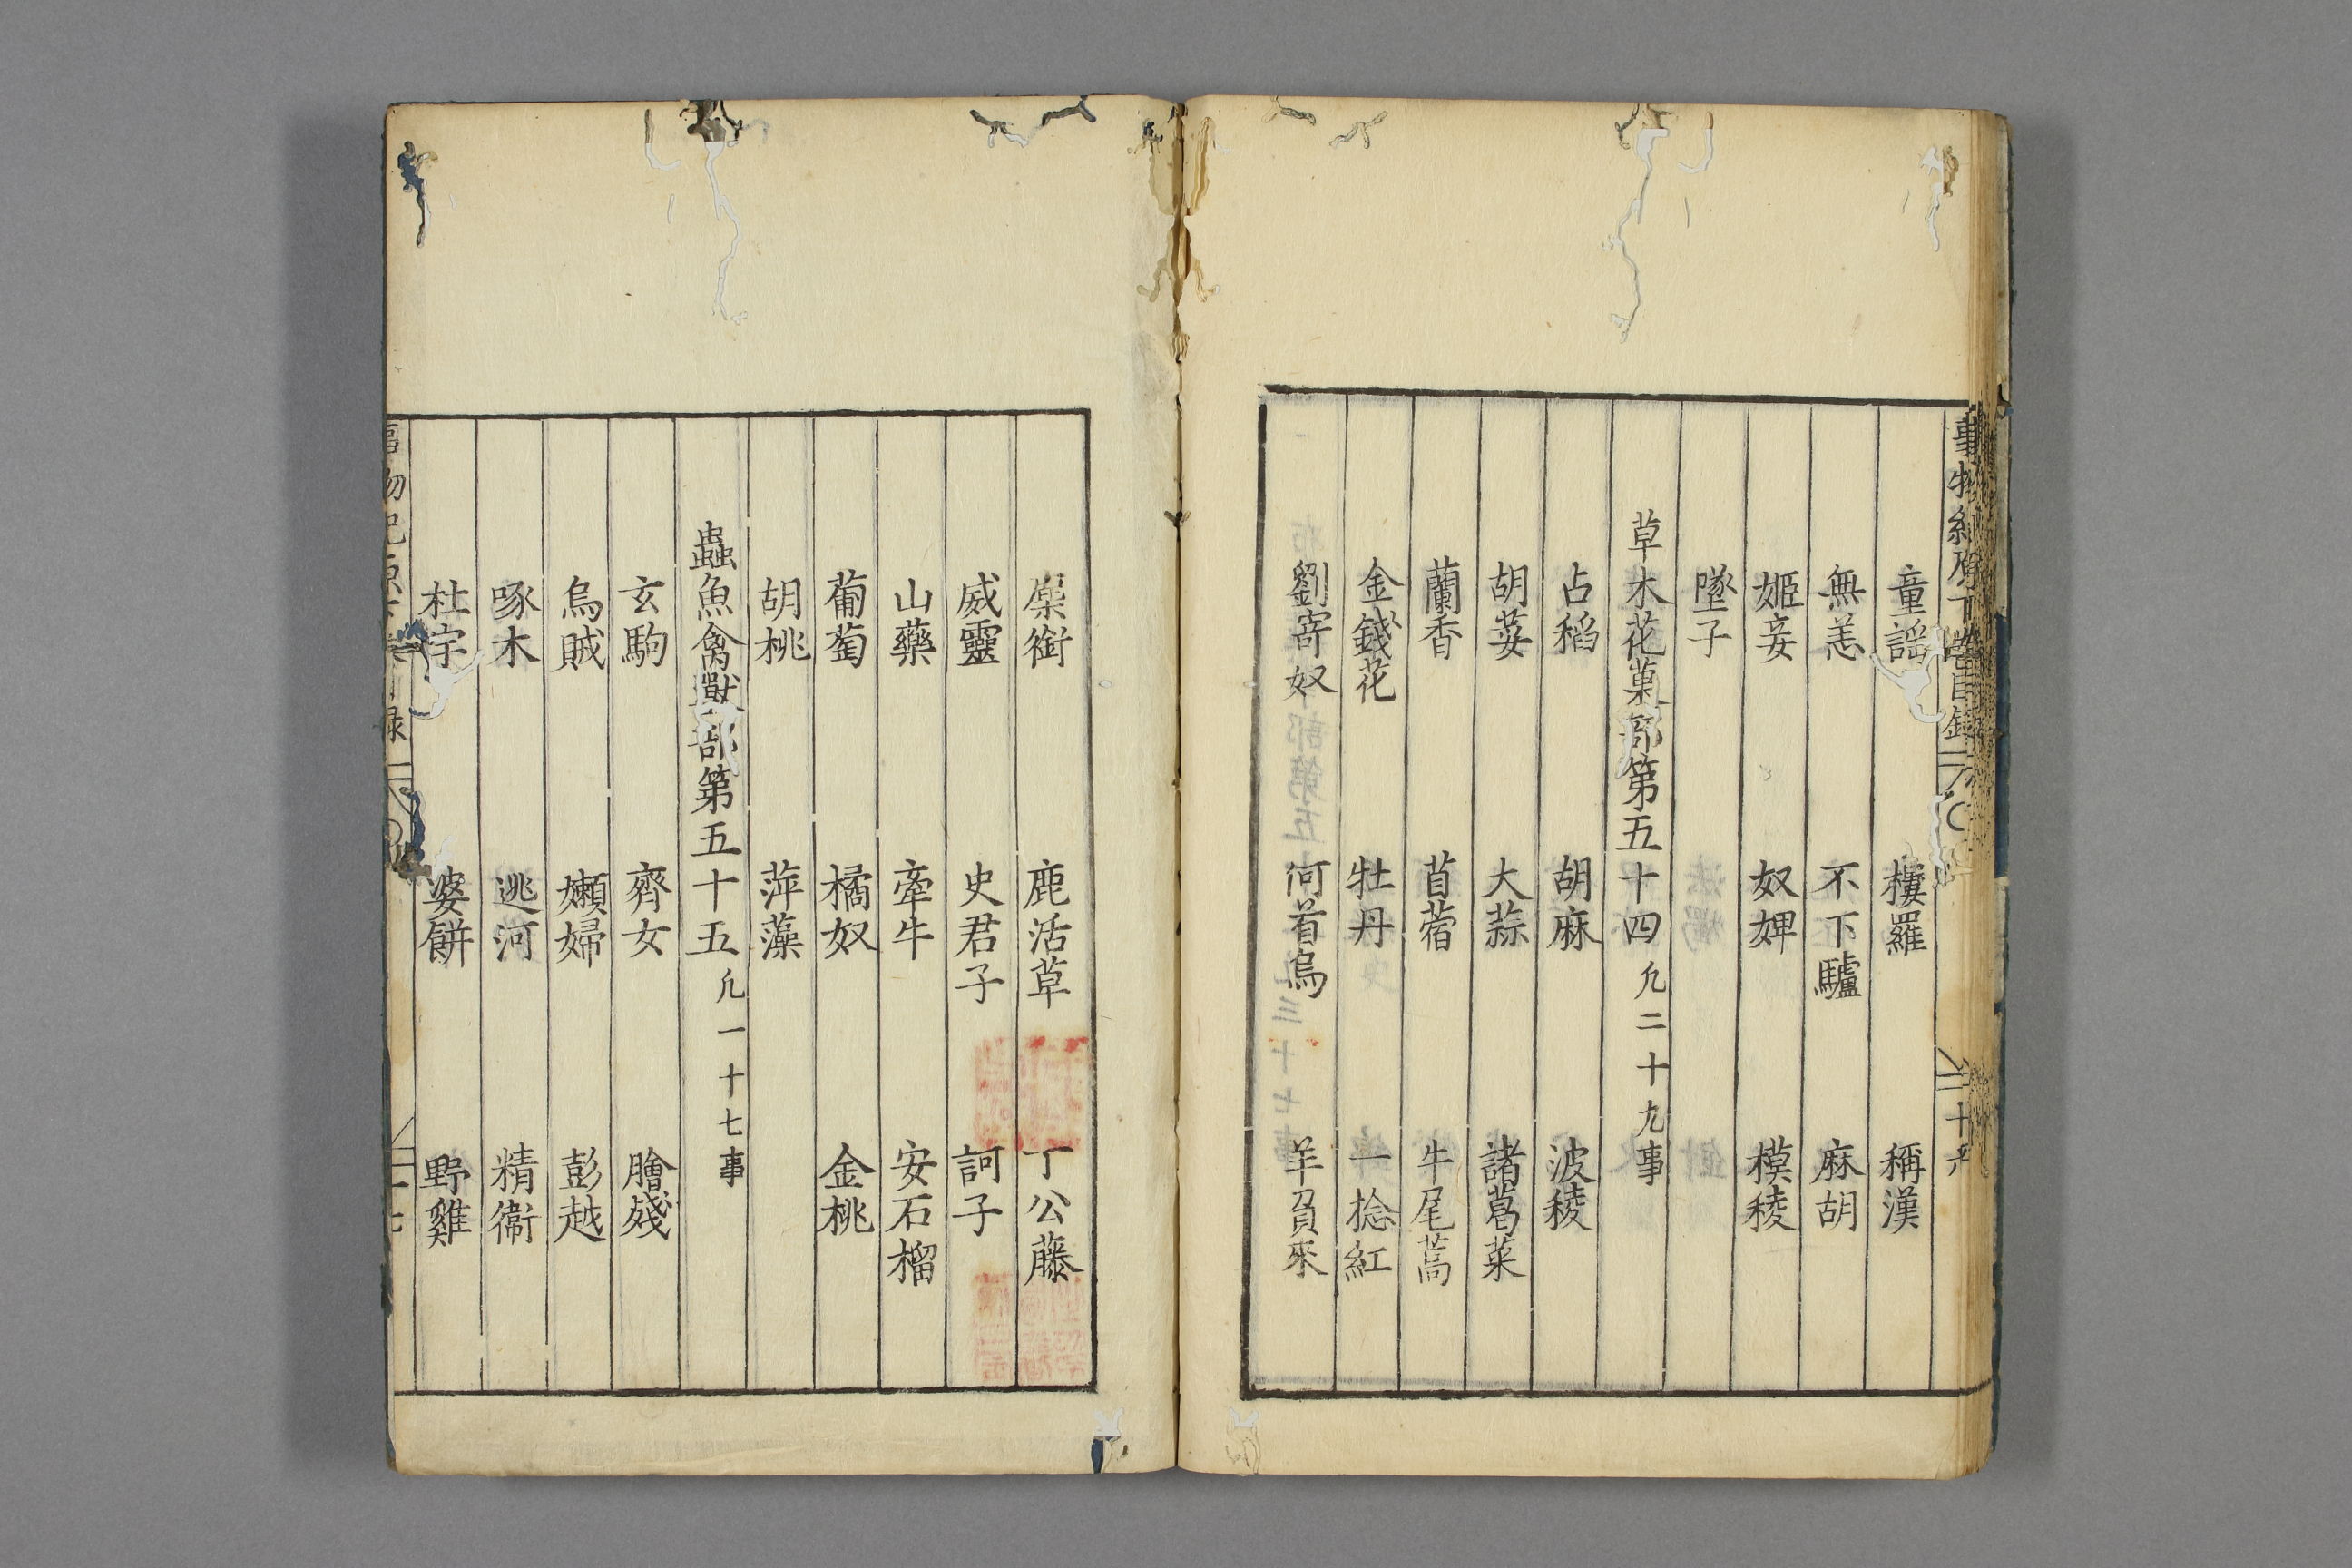 童謡 樓羅 稱漢
無恙 不下驢 麻胡
姬妾 奴婢 模稜
墜子
草木花菓部第五十四 凢二十九事
占稻 胡麻 波稜
胡荽 大蒜 諸葛菜
蘭香 苜蓿 牛尾蒿
金錢花 牡丹 一捻紅
劉寄奴 何首烏 羊負來
事物紀原 目録
麋銜 鹿活草 丁公藤
威靈 史君子 訶子
山藥 牽牛 安石榴
葡萄 橘奴 金桃
胡桃 萍藻
蟲魚禽獸部第五十五 凢一十七事
玄駒 齊女 膾殘
烏賊 嬾婦 彭越
啄木 逃河 精衞
杜宇 婆餅 野雞